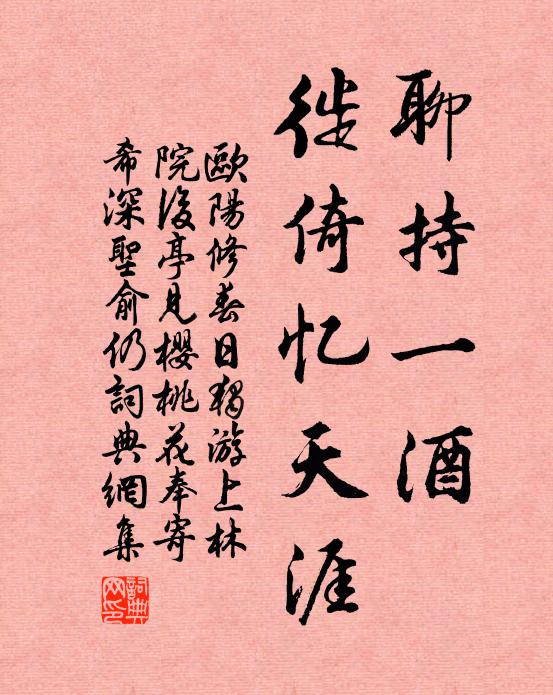 聊持一酒
徙倚忆天涯
歐陽修春日獨游上林
院後亭見櫻桃花奉寄
希深聖俞仍詞典網集
詞典網印